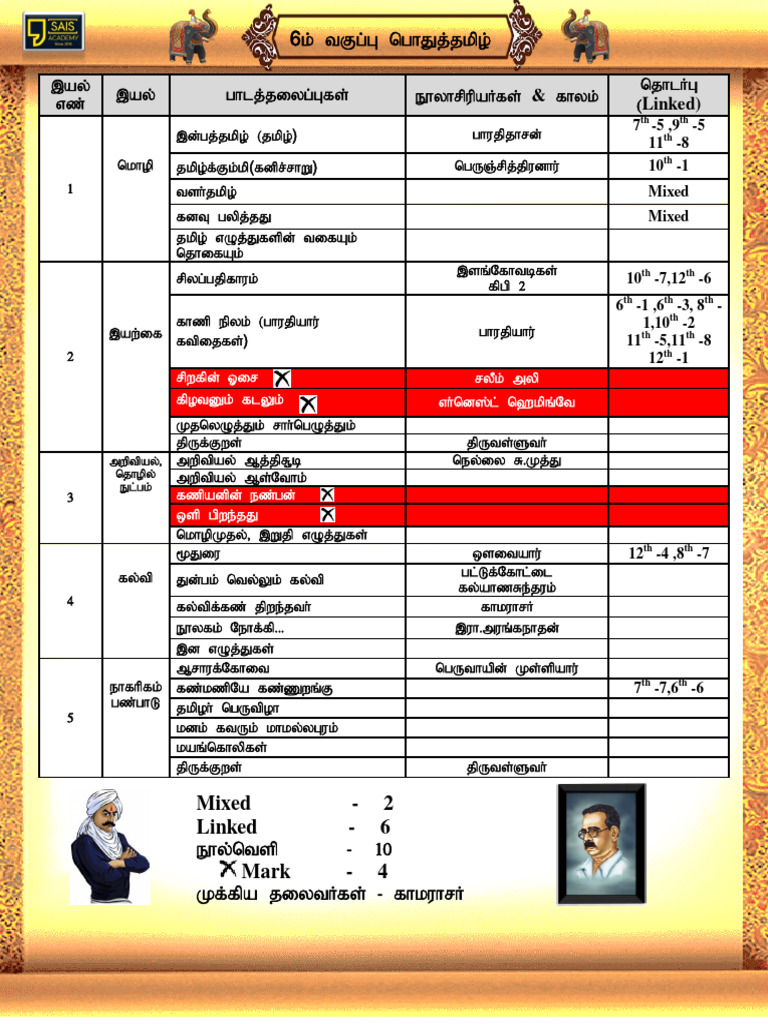 SAIS
ACADEMY
Since 2010
6ம் வகுப்பு பொதுத்தமிழ்
இயல் எண் இயல் பாடத்தலைப்புகள் நூலாசிரியர்கள் & காலம் தொடர்பு (Linked)
1 மொழி இன்பத்தமிழ் (தமிழ்) பாரதிதாசன் 7th -5 ,9th -5
11th -8
தமிழ்க்கும்மி(கனிச்சாறு) பெருஞ்சித்திரனார் 10th -1
வளர்தமிழ் Mixed
கனவு பலித்தது Mixed
தமிழ் எழுத்துகளின் வகையும்
தொகையும்
2 இயற்கை சிலப்பதிகாரம் இளங்கோவடிகள்
கிபி 2 10th -7,12th -6
காணி நிலம் (பாரதியார்
கவிதைகள்) பாரதியார் 6th -1 ,6th -3, 8th -
1,10th -2
11th -5,11th -8
12th -1
சிறகின் ஓசை சலீம் அலி
கிழவனும் கடலும் எர்னெஸ்ட் ஹெமிங்வே
முதலெழுத்தும் சார்பெழுத்தும்
திருக்குறள் திருவள்ளுவர்
3 அறிவியல்,
தொழில்
நுட்பம் அறிவியல் ஆத்திசூடி நெல்லை சு.முத்து
அறிவியல் ஆள்வோம்
கணியனின் நண்பன்
ஒளி பிறந்தது
மொழிமுதல், இறுதி எழுத்துகள்
4 கல்வி மூதுரை ஔவையார் 12th -4 ,8th -7
துன்பம் வெல்லும் கல்வி பட்டுக்கோட்டை
கல்யாணசுந்தரம்
கல்விக்கண் திறந்தவர் காமராசர்
நூலகம் நோக்கி... இரா.அரங்கநாதன்
இன எழுத்துகள்
5 நாகரிகம்
பண்பாடு ஆசாரக்கோவை பெருவாயின் முள்ளியார்
கண்மணியே கண்ணுறங்கு 7th -7,6th -6
தமிழர் பெருவிழா
மனம் கவரும் மாமல்லபுரம்
மயங்கொலிகள்
திருக்குறள் திருவள்ளுவர்
Mixed - 2
Linked - 6
நூல்வெளி - 10
Mark - 4
முக்கிய தலைவர்கள் - காமராசர்